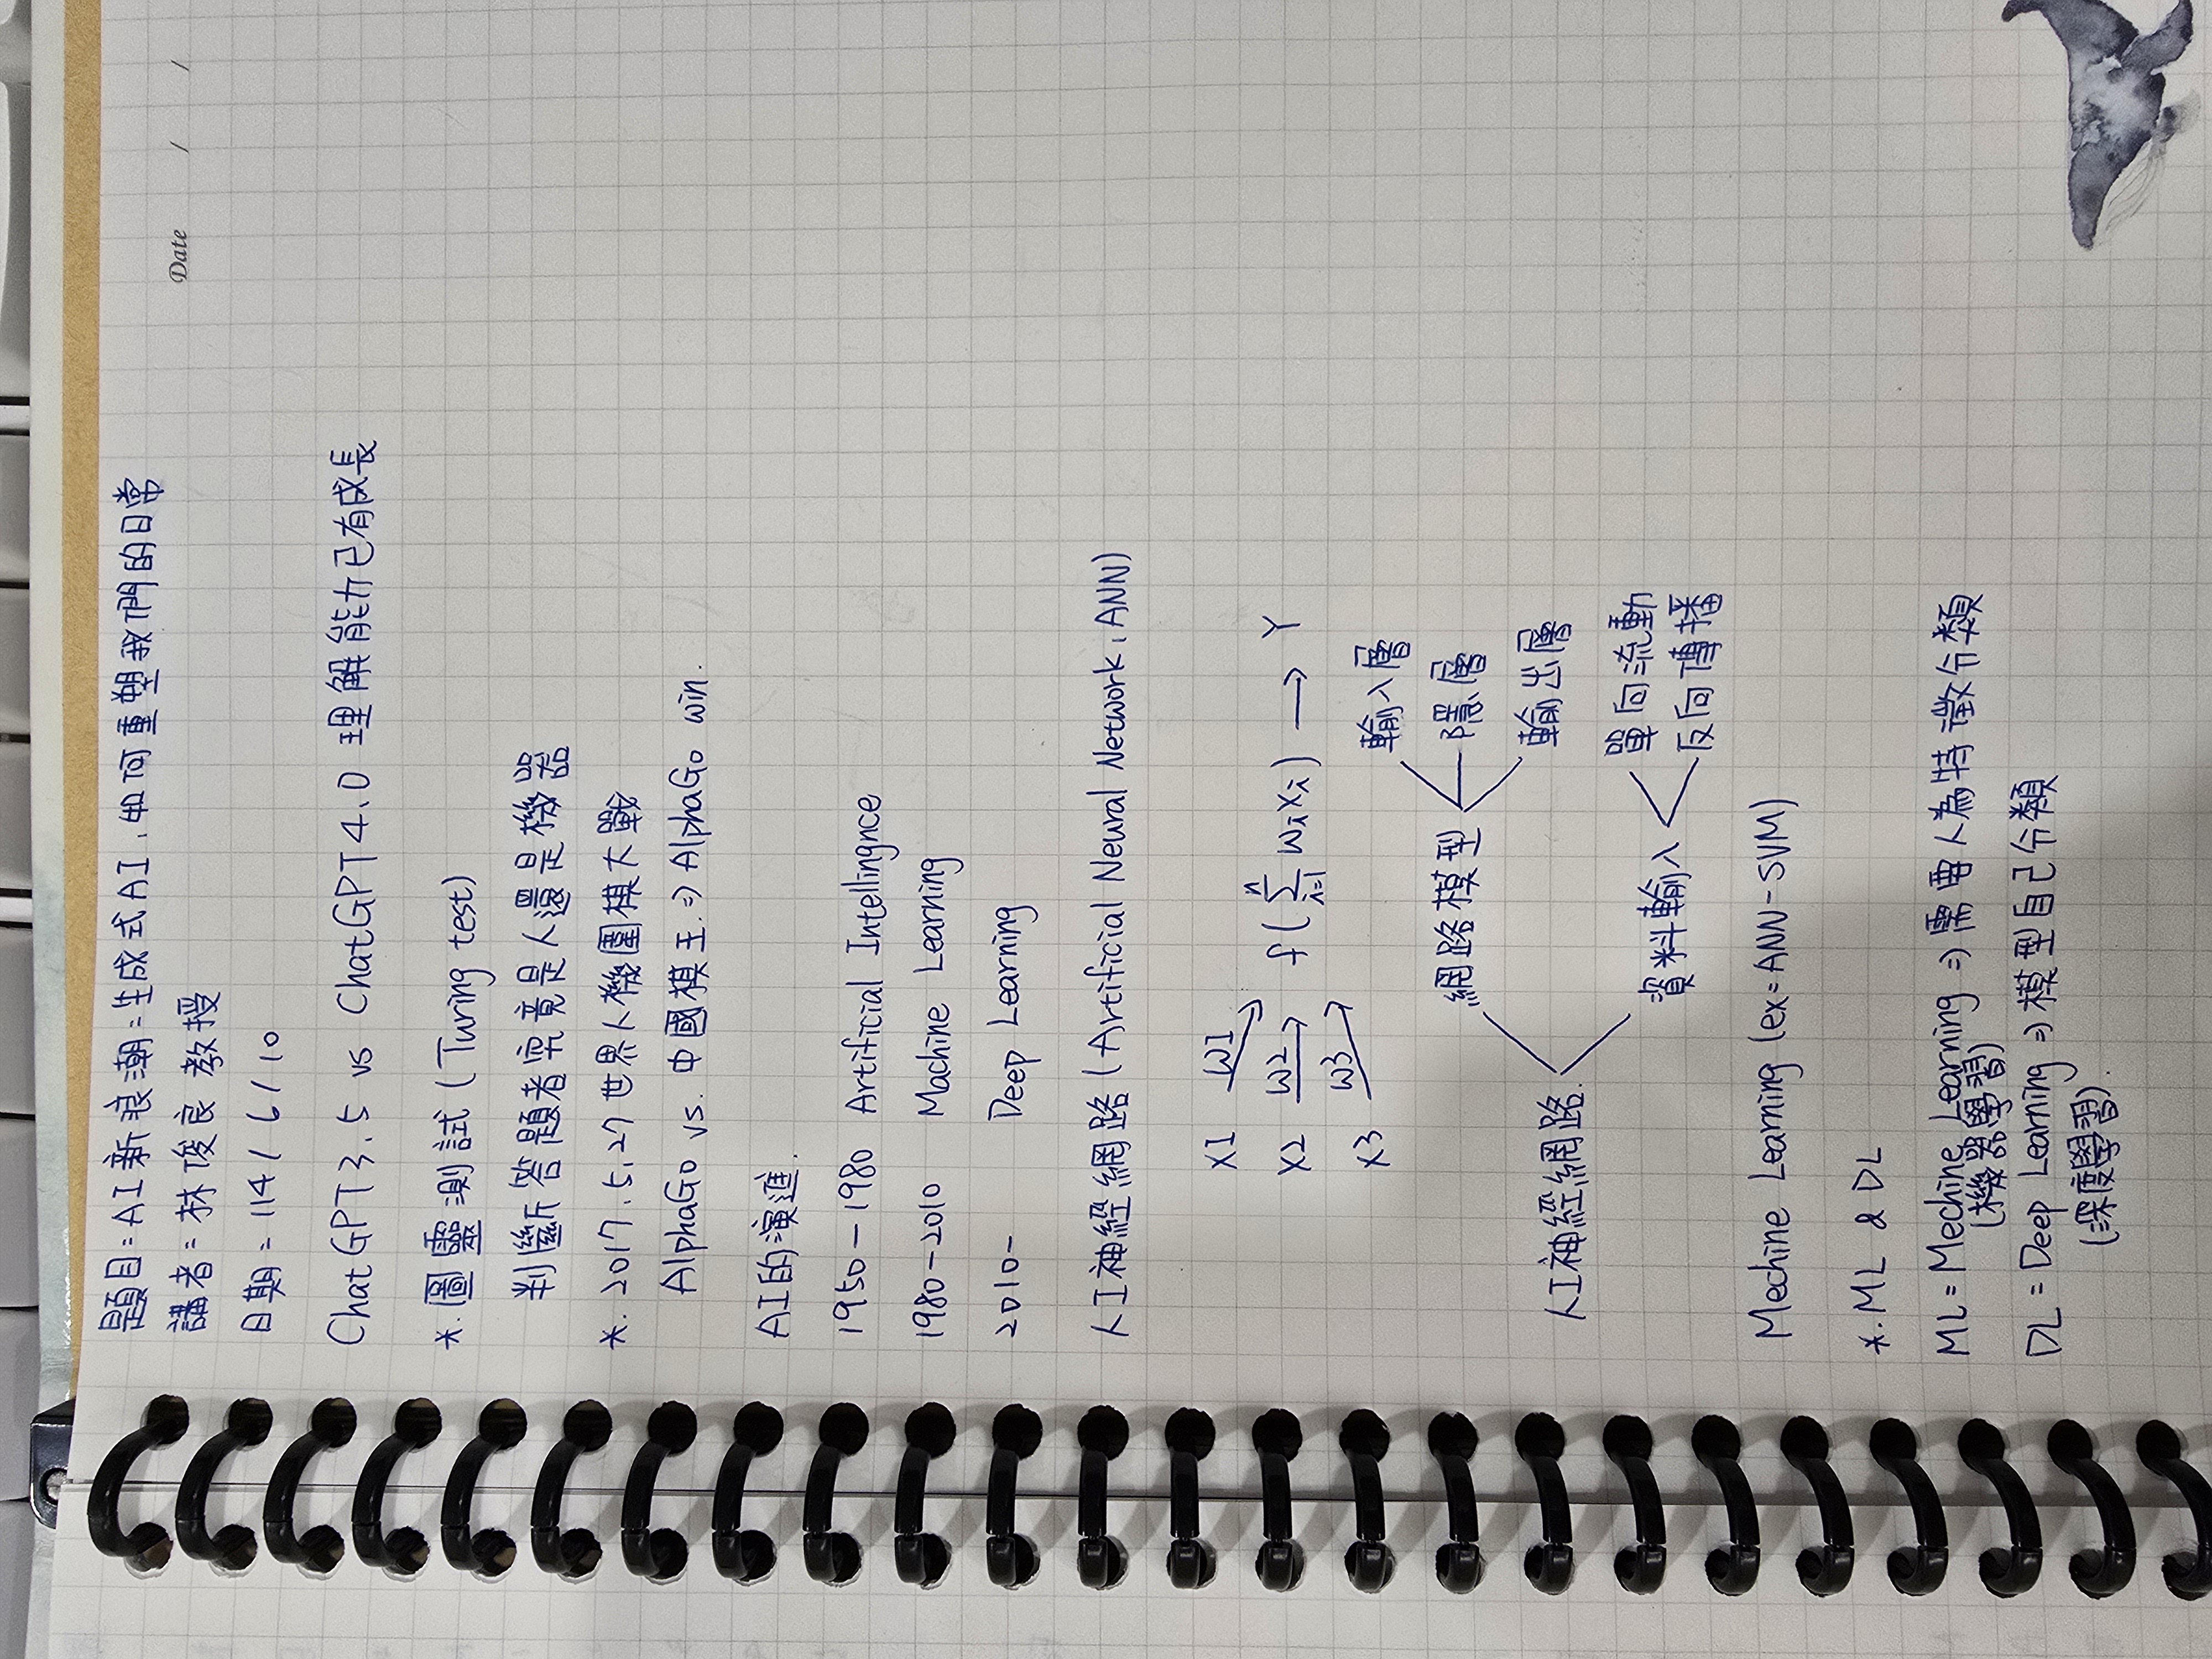 題目:AI新浪潮:生成式AI,如何重塑我們的日常
Date / /
講者:林俊良 教授
日期:114/6/10
ChatGPT3.5 vs ChatGPT4.0 理解能力已有成長
*.圖靈測試(Turing test)
判斷答題者究竟是人還是機器
*.2017.5.27世界人機圍棋大戰
AlphaGo vs.中國棋王.⇒AlphaGo win.
AI的演進.
1950-1980 Artificial Intellingnce
1980-2010 Machine Learning
2010- Deep Learning
人工神經網路(Artificial Neural Network,ANN)
X1 W1
X2 W2 → f(∑ⁿᵢ₌₁ wᵢxᵢ) → Y
X3 W3
輸入層
網路模型 隱層
輸出層
人工神經網路.
單向流動
資料輸入
反向傳播
Mechine Learning (ex:ANN-SVM)
*.ML & DL
ML:Mechine Learning ⇒ 需要人為特徵分類
(機器學習)
DL:Deep Learning ⇒ 模型自己分類
(深度學習).